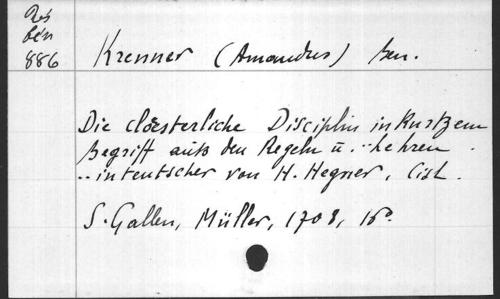 Rés
bén
886
Krenner (Amandus) ben.
Die clöesterliche Disciplin in Kurtzem
Begriff auß den Regeln ü. ..Lehren .
..in teutscher von H. Hegner, Cist.
S. Gallen, Müller, 1708, 16°.